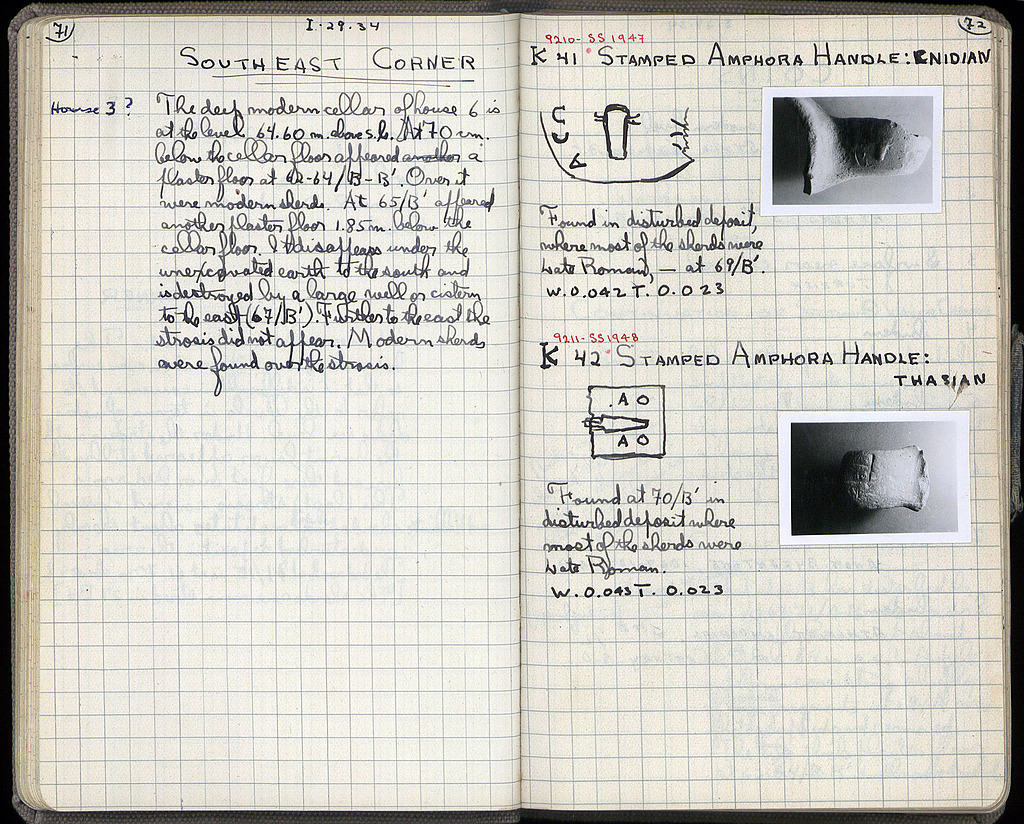 71
I · 29 · 34
SOUTHEAST CORNER
House 3 ?
The deep modern cellar of house 6 is
at the level 64.60 m. above s.l. At 70 cm.
below the cellar floor appeared another a
plaster floor at 62-64/B-B'. Over it
were modern sherds. At 65/B' appeared
another plaster floor 1.85 m. below the
cellar floor. It disappears under the
unexcavated earth to the south and
is destroyed by a large well or cistern
to the east (67/B'). Further to the east the
strosis did not appear. Modern sherds
were found over the strosis.
72
9210 - SS 1947
K 41 STAMPED AMPHORA HANDLE: CNIDIAN
Found in disturbed deposit,
where most of the sherds were
Late Roman, — at 69/B'.
W. 0.042 T. 0.023
9211 - SS 1948
K 42 STAMPED AMPHORA HANDLE:
THASIAN
A O
A O
Found at 70/B' in
disturbed deposit where
most of the sherds were
Late Roman.
W. 0.043 T. 0.023